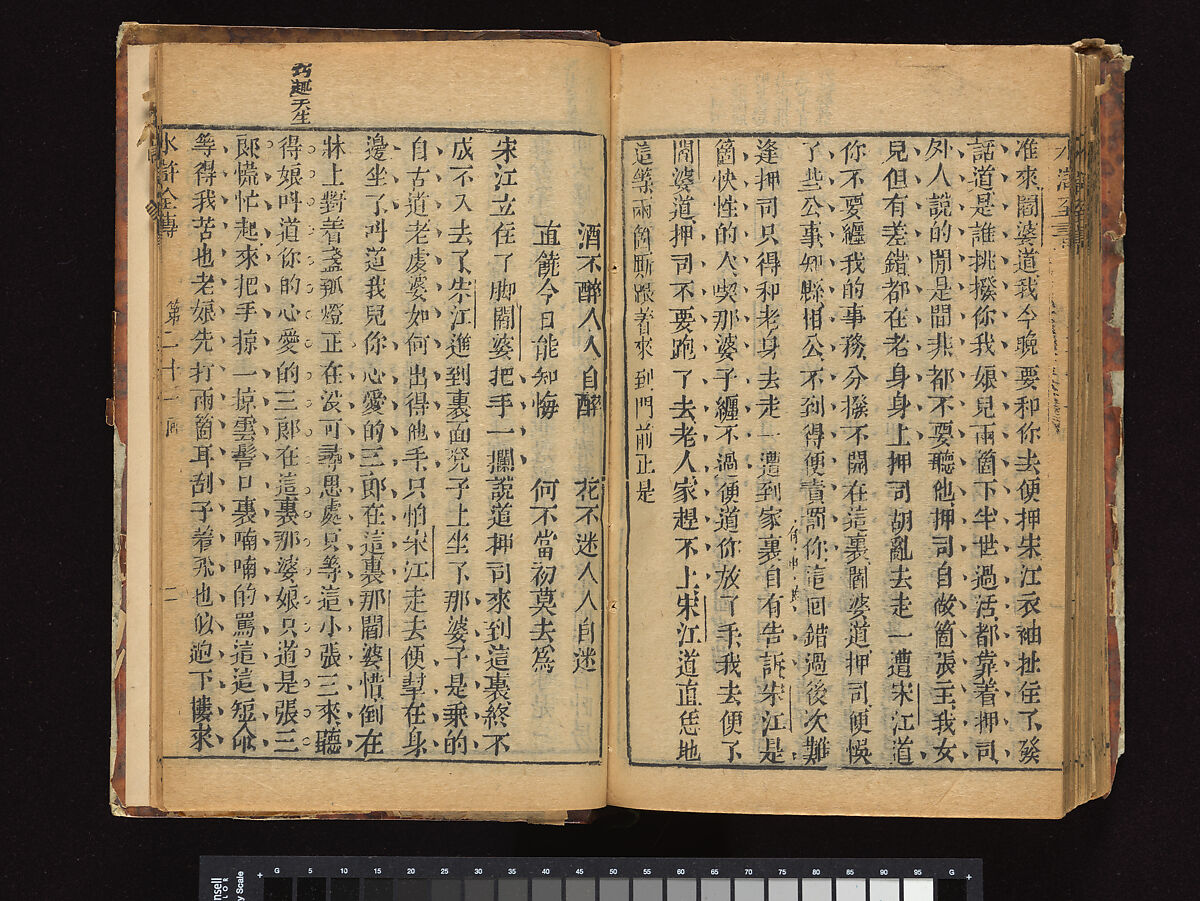 准來閻婆道我今晚要和你去便押宋江衣袖扯住了發
話道是誰挑撥你我娘兒兩箇下半世過活都靠着押司
外人說的閒是閒非都不要聽他押司自做箇張主我女
兒但有差錯都在老身身上押司胡亂去走一遭宋江道
你不要纏我的事務分撥不開在這裏閻婆道押司便悞
了些公事知縣相公不到得便責罰你這回錯過後次難
逢押司只得和老身去走一遭到家裏自有告訴宋江是
箇快性的人喫那婆子纏不過便道你放了手我去便了
閻婆道押司不要跑了去老人家趕不上宋江道直恁地
這等兩箇厮跟着來到門前正是
酒不醉人人自醉 花不迷人人自迷
直饒今日能知悔 何不當初莫去爲
宋江立住了脚閻婆把手一攔說道押司來到這裏終不
成不入去了宋江進到裏面凳子上坐了那婆子是乘的
自古道老虔婆如何出得他手只怕宋江走去便幫在身
邊坐了叫道我兒你心愛的三郎在這裏那閻婆惜倒在
牀上對着盞孤燈正在沒可尋思處只等這小張三來聽
得娘叫道你的心愛的三郎在這裏那婆娘只道是張三
郎慌忙起來把手掠一掠雲髻口裏喃喃的罵道這短命
等得我苦也老娘先打兩箇耳刮子着飛也似跑下樓來
巧趣天生
水滸全傳 第二十一回 二
G 5 10 15 20 25 30 35 40 45 50 55 60 65 70 75 80 85 90 95 G